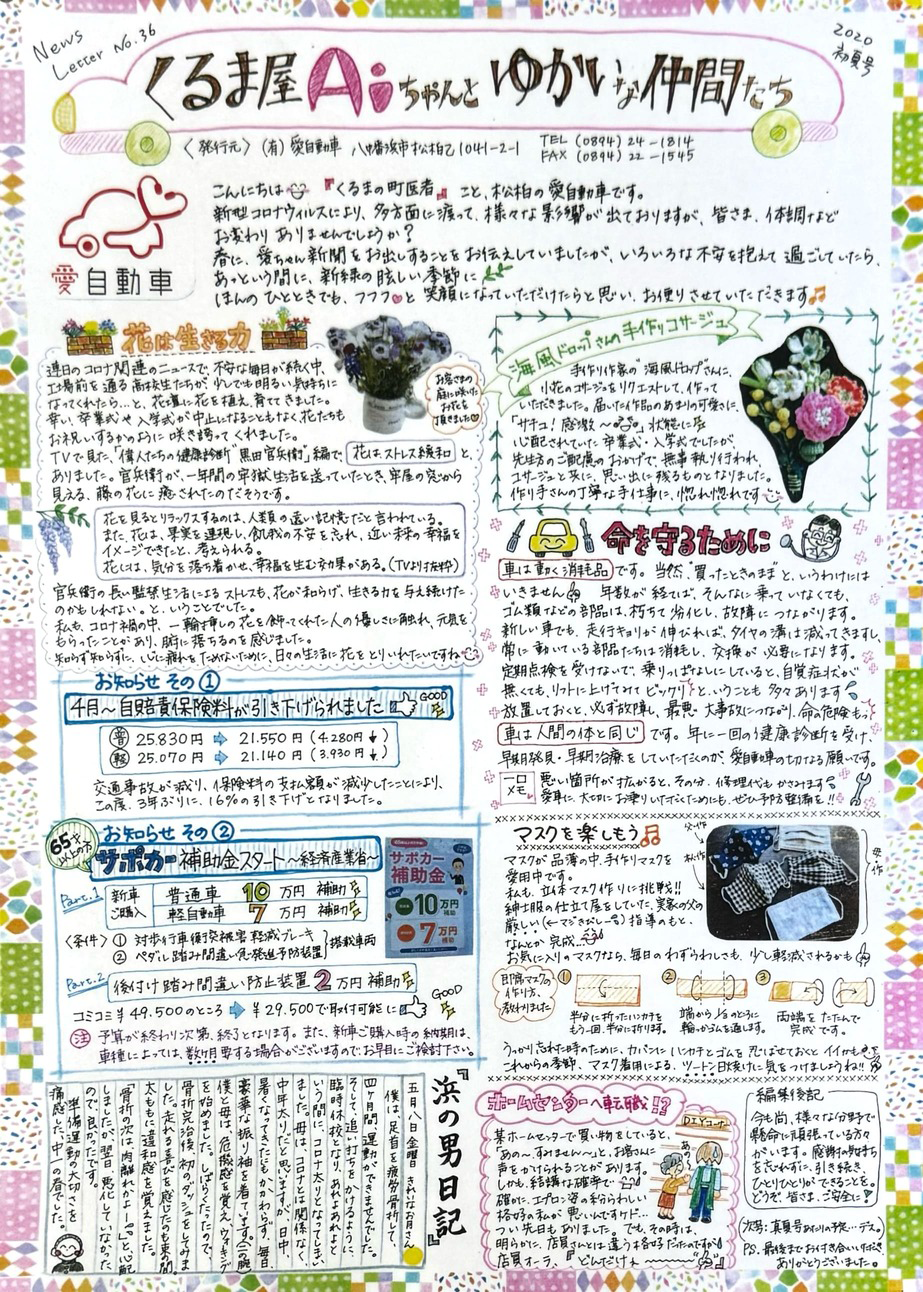 News
Letter No.36
2020
初夏号
くるま屋Aiちゃんと ゆかいな仲間たち
〈発行元〉(有)愛自動車 八幡浜市松柏乙1041-2-1
TEL (0894) 24-1814
FAX (0894) 22-1545
愛自動車
こんにちは 『くるまの町医者』 こと、松柏の愛自動車です。
新型コロナウィルスにより、多方面に渡って、様々な影響が出ておりますが、皆さま、体調など
お変わりありませんでしょうか?
春に、愛ちゃん新聞をお出しすることをお伝えしていましたが、いろいろな不安を抱えて過ごしていたら、
あっという間に、新緑の眩しい季節に
ほんのひとときでも、フフフ♡と笑顔になっていただけたらと思い、お便りさせていただきます♫
花は生きる力
連日のコロナ関連のニュースで、不安な毎日が続く中、
工場前を通る高校生たちが、少しでも明るい気持ちに
なってくれたら…と、花壇に花を植え、育ててきました。
幸い、卒業式や入学式が中止になることもなく、花たちも
お祝いするかのように咲き誇ってくれました。
TVで見た、"偉人たちの健康診断"黒田官兵衛"編で、花はストレス緩和と、
ありました。官兵衛が、一年間の牢獄生活を送っていたとき、牢屋の窓から
見える、藤の花に癒されたのだそうです。
お客さまの
庭に咲いた
お花を
頂きました♡
花を見るとリラックスするのは、人類の遠い記憶だと言われている。
また、花は、果実を連想し、飢餓の不安を忘れ、近い未来の幸福を
イメージできたと、考えられる。
花には、気分を落ち着かせ、幸福を生む効果がある。(TVより抜粋)
官兵衛の長い監禁生活によるストレスも、花が和らげ、生きる力を与え続けた
のかもしれない。と、いうことでした。
私も、コロナ禍の中、一輪挿しの花を飾ってくれた人の優しさに触れ、元気を
もらったことがあり、腑に落ちるのを感じました。
知らず知らずに、心に疲れをためないために、日々の生活に花をとりいれたいですね
海風ドロップさんの手作りコサージュ
手作り作家の"海風ドロップ"さんに、
小花のコサージュをリクエストして、作って
いただきました。届いた作品のあまりの可愛さに、
「サチコ!感激~」状態に
心配されていた卒業式・入学式でしたが、
先生方のご配慮のおかげで、無事執り行われ、
コサージュと共に、思い出に残るものとなりました。
作り手さんの丁寧な手仕事に、惚れ惚れです
命を守るために
車は動く消耗品です。当然"買ったときのまま"と、いうわけには
いきません 年数が経てば、そんなに乗っていなくても、
ゴム類などの部品は、朽ちて劣化し、故障につながります。
新しい車でも、走行キョリが伸びれば、タイヤの溝は減ってきますし、
常に動いている部品たちは消耗し、交換が必要になります。
定期点検を受けないで、乗りっぱなしにしていると、自覚症状が
無くても、リフトに上げてみてビックリと、いうことも多々あります
放置しておくと、必ず故障し、最悪大事故につながり、命の危険も
車は人間の体と同じです。年に一回の健康診断を受け、
早期発見・早期治療をしていただくのが、愛自動車の切なる願いです。
一口
メモ
悪い箇所が拡がると、その分、修理代もかさみます
愛車に、大切にお乗りいただくためにも、ぜひ予防整備を!!
お知らせ その①
4月~自賠責保険料が引き下げられました GOOD
普 25.830円 ⇨ 21.550円 (4.280円↓)
軽 25.070円 ⇨ 21.140円 (3.930円↓)
交通事故が減り、保険料の支払額が減少したことにより、
この度、3年ぶりに、16%の引き下げとなりました。
65才
以上の方
お知らせ その②
サポカー補助金スタート~経済産業省~
Part.1
新車
ご購入
普通車 10万円 補助
軽自動車 7万円 補助
〈条件〉① 対歩行車衝突被害軽減ブレーキ
② ペダル踏み間違い急発進予防装置
搭載車両
サポカー
補助金
10万円
補助
7万円
補助
Part.2
後付け踏み間違い防止装置 2万円補助
コミコミ¥49.500のところ ⇨ ¥29.500で取付可能に GOOD
注 予算が終わり次第、終了となります。また、新車ご購入時の納期は、
車種によっては、数ヶ月要する場合がございますのでお早目にご検討下さい。
マスクを楽しもう♫
マスクが品薄の中、手作りマスクを
愛用中です。
私も、立体マスク作りに挑戦!!
紳士服の仕立て屋をしていた、実家の父の
厳しい(←マジきびし~)指導のもと、
なんとか完成
お気に入りのマスクなら、毎日のわずらわしさも、少し軽減されるかも
父・作
私・作
母・作
即席マスクの
作り方、
教わりました
①
半分に折ったハンカチを
もう一回、半分に折ります。
②
端から1/3のところに
輪っかゴムを通します。
③
両端をたたんで
完成です。
うっかり忘れた時のために、カバンにハンカチとゴムを忍ばせておくとイイかも
これからの季節、マスク着用による、ツートン日焼けに気をつけましょうね!!
『浜の男日記』
五月八日金曜日 きれいなお月さん
僕は、足首を疲労骨折して、
四ヶ月間、運動ができませんでした。
そして、追い打ちをかけるように、
臨時休校となり、あれよあれよと
いう間に、コロナ太りとなってしまい
ました。母は、コロナとは関係なく、
中年太りだと思いますが、日中、
暑くなってきたにもかかわらず、毎日、
豪華な振り袖を着ています(二の腕)
僕と母は、危機感を覚え、ウォーキング
を始めました。しばらくたったので、
骨折完治後、初のダッシュをしてみま
した。走れる喜びを感じたのも束の間、
太ももに違和感を覚えました。
骨折の次は、肉離れかよ…と、心配
しましたが、翌日、悪化していなかった
ので、良かったです。
準備運動の大切さを
痛感した、中一の春でした。
ホームセンターへ転職!?
某ホームセンターで買い物をしていると、
「あの~、すみませ~ん」と、お客さんに
声をかけられることがあります。
しかも、結構な確率で
確かに、エプロン姿の私らしい
格好の私が悪いんですけど…
つい先日もありました。でも、その時は、
明らかに、店員さんとは違う格好だったのですが
店員オーラ、『どんだけぇ~
DIYコーナー
編集後記
今も尚、様々な分野で
懸命に頑張っている方々
がいます。感謝の気持ち
を忘れずに、引き続き、
ひとりひとりができることを。
どうぞ、皆さま、ご安全に!
(次号:真夏号あたりの予定…デス。)
PS. 最後までお付き合いいただき、
ありがとうございました。